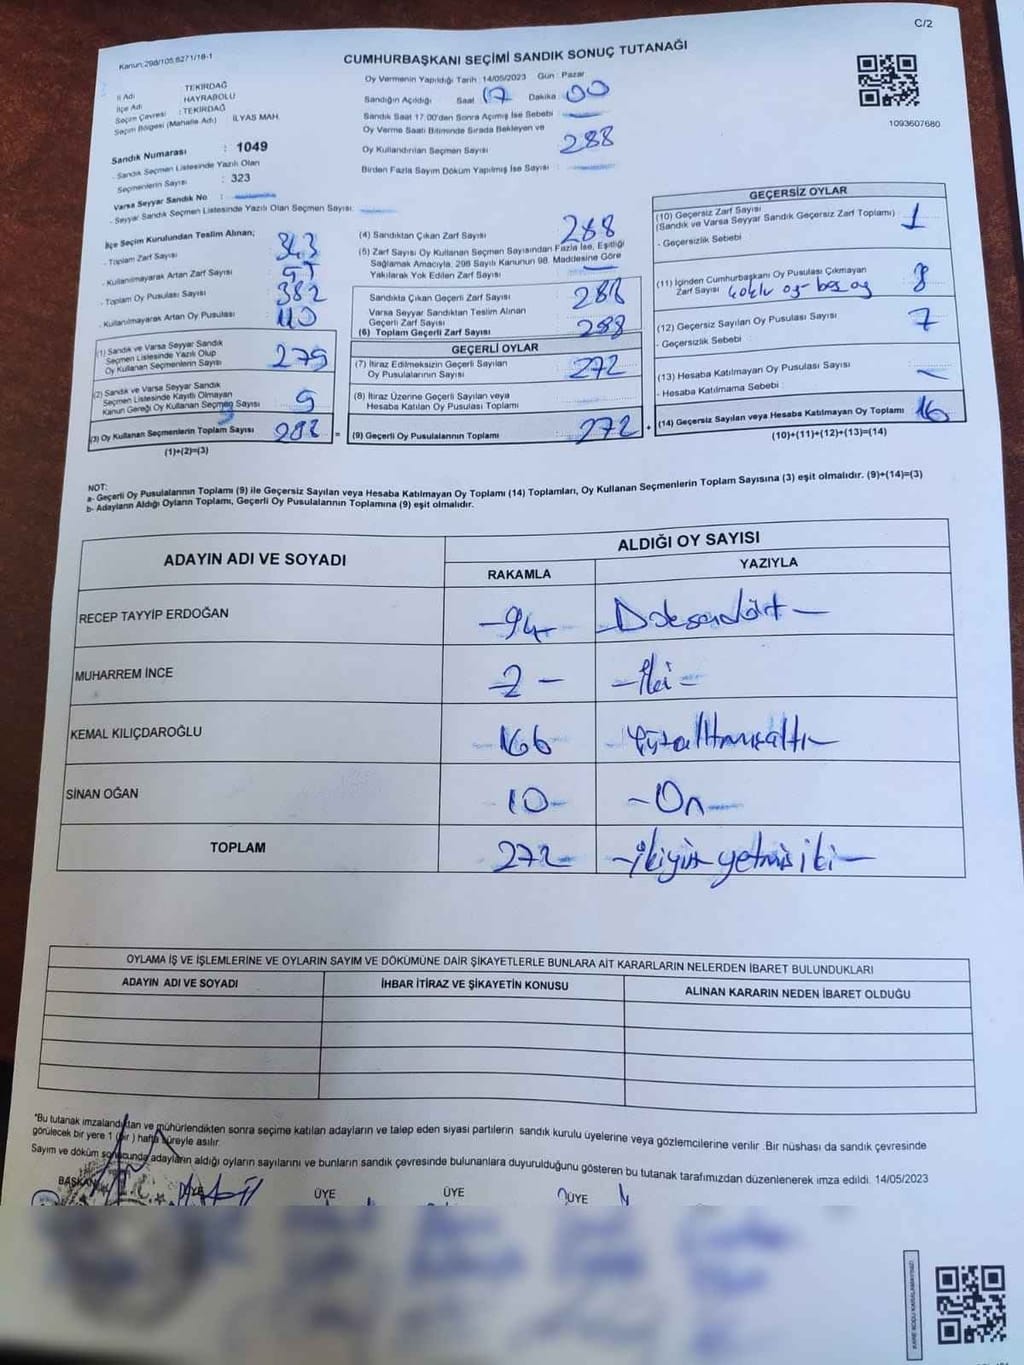 C/2
Kanun:298/105,6271/18-1
CUMHURBAŞKANI SEÇİMİ SANDIK SONUÇ TUTANAĞI
İl Adı : TEKİRDAĞ
İlçe Adı : HAYRABOLU
Seçim Çevresi : TEKİRDAĞ
Seçim Bölgesi (Mahalle Adı) : İLYAS MAH.
Oy Vermenin Yapıldığı Tarih : 14/05/2023 Gün : Pazar
Sandığın Açıldığı Saat 17 Dakika 00
Sandık Saat 17.00'den Sonra Açımış İse Sebebi :
Oy Verme Saati Bitiminde Sırada Bekleyen ve
Oy Kullandırılan Seçmen Sayısı : 288
Birden Fazla Sayım Döküm Yapılmış İse Sayısı :
1093607680
Sandık Numarası : 1049
- Sandık Seçmen Listesinde Yazılı Olan
Seçmenlerin Sayısı : 323
Varsa Seyyar Sandık No :
- Seyyar Sandık Seçmen Listesinde Yazılı Olan Seçmen Sayısı:
İlçe Seçim Kurulundan Teslim Alınan;
- Toplam Zarf Sayısı : 343
- Kullanılmayarak Artan Zarf Sayısı :
- Toplam Oy Pusulası Sayısı : 382
- Kullanılmayarak Artan Oy Pusulası : 110
(1) Sandık ve Varsa Seyyar Sandık
Seçmen Listesinde Yazılı Olup
Oy Kullanan Seçmenlerin Sayısı : 279
(2) Sandık ve Varsa Seyyar Sandık
Seçmen Listesinde Kayıtlı Olmayan
Kanun Gereği Oy Kullanan Seçmen Sayısı : 9
(3) Oy Kullanan Seçmenlerin Toplam Sayısı
(1)+(2)=(3)
(4) Sandıktan Çıkan Zarf Sayısı : 288
(5) Zarf Sayısı Oy Kullanan Seçmen Sayısından Fazla İse, Eşitliği
Sağlamak Amacıyla, 298 Sayılı Kanunun 98. Maddesine Göre
Yakılarak Yok Edilen Zarf Sayısı :
Sandıkta Çıkan Geçerli Zarf Sayısı : 288
Varsa Seyyar Sandıktan Teslim Alınan
Geçerli Zarf Sayısı
(6) Toplam Geçerli Zarf Sayısı : 288
GEÇERLİ OYLAR
(7) İtiraz Edilmeksizin Geçerli Sayılan
Oy Pusulalarının Sayısı : 272
(8) İtiraz Üzerine Geçerli Sayılan veya
Hesaba Katılan Oy Pusulası Toplamı :
(9) Geçerli Oy Pusulalarının Toplamı : 272
GEÇERSİZ OYLAR
(10) Geçersiz Zarf Sayısı
(Sandık ve Varsa Seyyar Sandık Geçersiz Zarf Toplamı) : 1
- Geçersizlik Sebebi :
(11) İçinden Cumhurbaşkanı Oy Pusulası Çıkmayan
Zarf Sayısı : 8
(12) Geçersiz Sayılan Oy Pusulası Sayısı : 7
- Geçersizlik Sebebi :
(13) Hesaba Katılmayan Oy Pusulası Sayısı :
- Hesaba Katılmama Sebebi :
(14) Geçersiz Sayılan veya Hesaba Katılmayan Oy Toplamı : 16
(10)+(11)+(12)+(13)=(14)
NOT:
a- Geçerli Oy Pusulalarının Toplamı (9) ile Geçersiz Sayılan veya Hesaba Katılmayan Oy Toplamı (14) Toplamları, Oy Kullanan Seçmenlerin Toplam Sayısına (3) eşit olmalıdır. (9)+(14)=(3)
b- Adayların Aldığı Oyların Toplamı, Geçerli Oy Pusulalarının Toplamına (9) eşit olmalıdır.
ADAYIN ADI VE SOYADI ALDIĞI OY SAYISI
RAKAMLA YAZIYLA
RECEP TAYYİP ERDOĞAN -94- Doksandört-
MUHARREM İNCE -2- -İki-
KEMAL KILIÇDAROĞLU -166 Yüzaltmışaltı-
SİNAN OĞAN 10- -On-
TOPLAM 272- -İkiyüz yetmiş iki-
OYLAMA İŞ VE İŞLEMLERİNE VE OYLARIN SAYIM VE DÖKÜMÜNE DAİR ŞİKAYETLERLE BUNLARA AİT KARARLARIN NELERDEN İBARET BULUNDUKLARI
ADAYIN ADI VE SOYADI İHBAR İTİRAZ VE ŞİKAYETİN KONUSU ALINAN KARARIN NEDEN İBARET OLDUĞU
*Bu tutanak imzalandıktan ve mühürlendikten sonra seçime katılan adayların ve talep eden siyasi partilerin sandık kurulu üyelerine veya gözlemcilerine verilir .Bir nüshası da sandık çevresinde
görülecek bir yere 1 (bir ) hafta süreyle asılır.
Sayım ve döküm sonucunda adayların aldığı oyların sayılarını ve bunların sandık çevresinde bulunanlara duyurulduğunu gösteren bu tutanak tarafımızdan düzenlenerek imza edildi. 14/05/2023
BAŞKAN ÜYE ÜYE ÜYE ÜYE